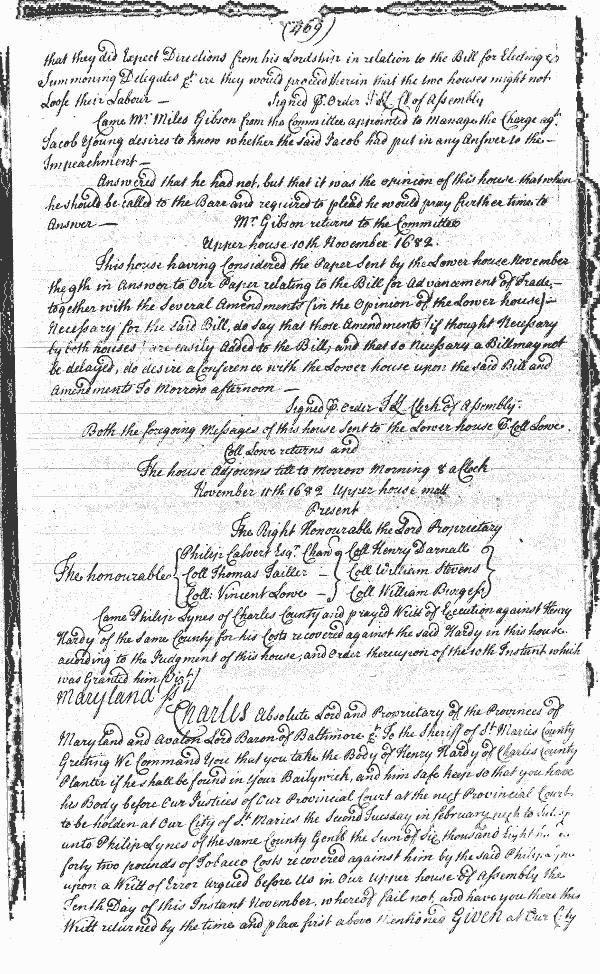 (469)
that they did Expect Directions from his Lordship in relation to the Bill for Electing &
Summoning Delegates &t ere they would proceed therein that the two houses might not
Loose their Labour — Signed p. Order Cl of Assembly
Came Mr. Miles Gibson from the Committee appointed to Manage the Charge agt.
Jacob Young desires to know whether the said Jacob had put in any Answer to the —
Impeachment —
Answered that he had not, but that it was the opinion of this house that when
he should be called to the Barr and required to plead he would pray further time to
Answer — Mr. Gibson returns to the Committee
Upper house 10th November 1682.
This house having Considered the Paper Sent by the Lower house November
the 9th in Answer to Our Paper relating to the Bill for Advancement of Trade, —
together with the Several Amendments (in the Opinion of the Lower house) —
Necessary for the said Bill, do say that those Amendments (if thought Necessary
by both houses) are easily Added to the Bill, and that so Necessary a Bill may not
be delayed, do desire a Conference with the Lower house upon the said Bill and
Amendments To Morrow afternoon —
Signed p. Order Clerk of Assembly.
Both the foregoing Messages of this house Sent to the Lower house p. Coll Lowe.
Coll Lowe returns and
The house Adjourns till to Morrow Morning 8 a Clock
November 11th 1682 Upper house mett
Present
The Right Honourable the Lord Proprietary
The honourable { Philip Calvert Esqr. Chanr } Coll Henry Darnall
Coll Thomas Tailler — Coll William Stevens
Coll: Vincent Lowe — Coll William Burgess
Came Philip Lynes of Charles County and prayed Writt of Execution against Henry
Hardy of the same County for his Costs recovered against the said Hardy in this house
according to the Judgment of this house, and Order thereupon of the 10th Instant which
was Granted him
Maryland ss
Charles Absolute Lord and Proprietary of the Provinces of
Maryland and Avalon Lord Baron of Baltimore &t. To the Sheriff of St Maries County
Greeting We Command You that you take the Body of Henry Hardy of Charles County
Planter if he shall be found in Your Bailywick, and him Safe keep so that you have
his Body before Our Justices of Our Provincial Court at the next Provincial Court
to be holden at Our City of St. Maries the Second Tuesday in february next to
unto Philip Lynes of the same County Gentl the Sum of Six thousand Eight
forty two pounds of Tobacco Costs recovered against him by the said Philip
upon a Writt of Error Argued before Us in Our Upper house of Assembly the
Tenth Day of this Instant November, whereof fail not, and have you there this
Writt returned by the time and place first above Mentioned Given at Our City